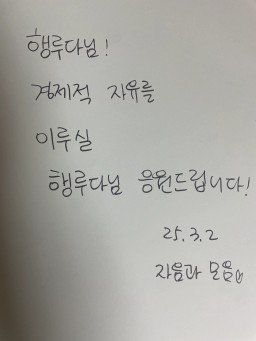 행루다님!
경제적 자유를
이루실
행루다님 응원드립니다!
25.3.2
자음과 모음